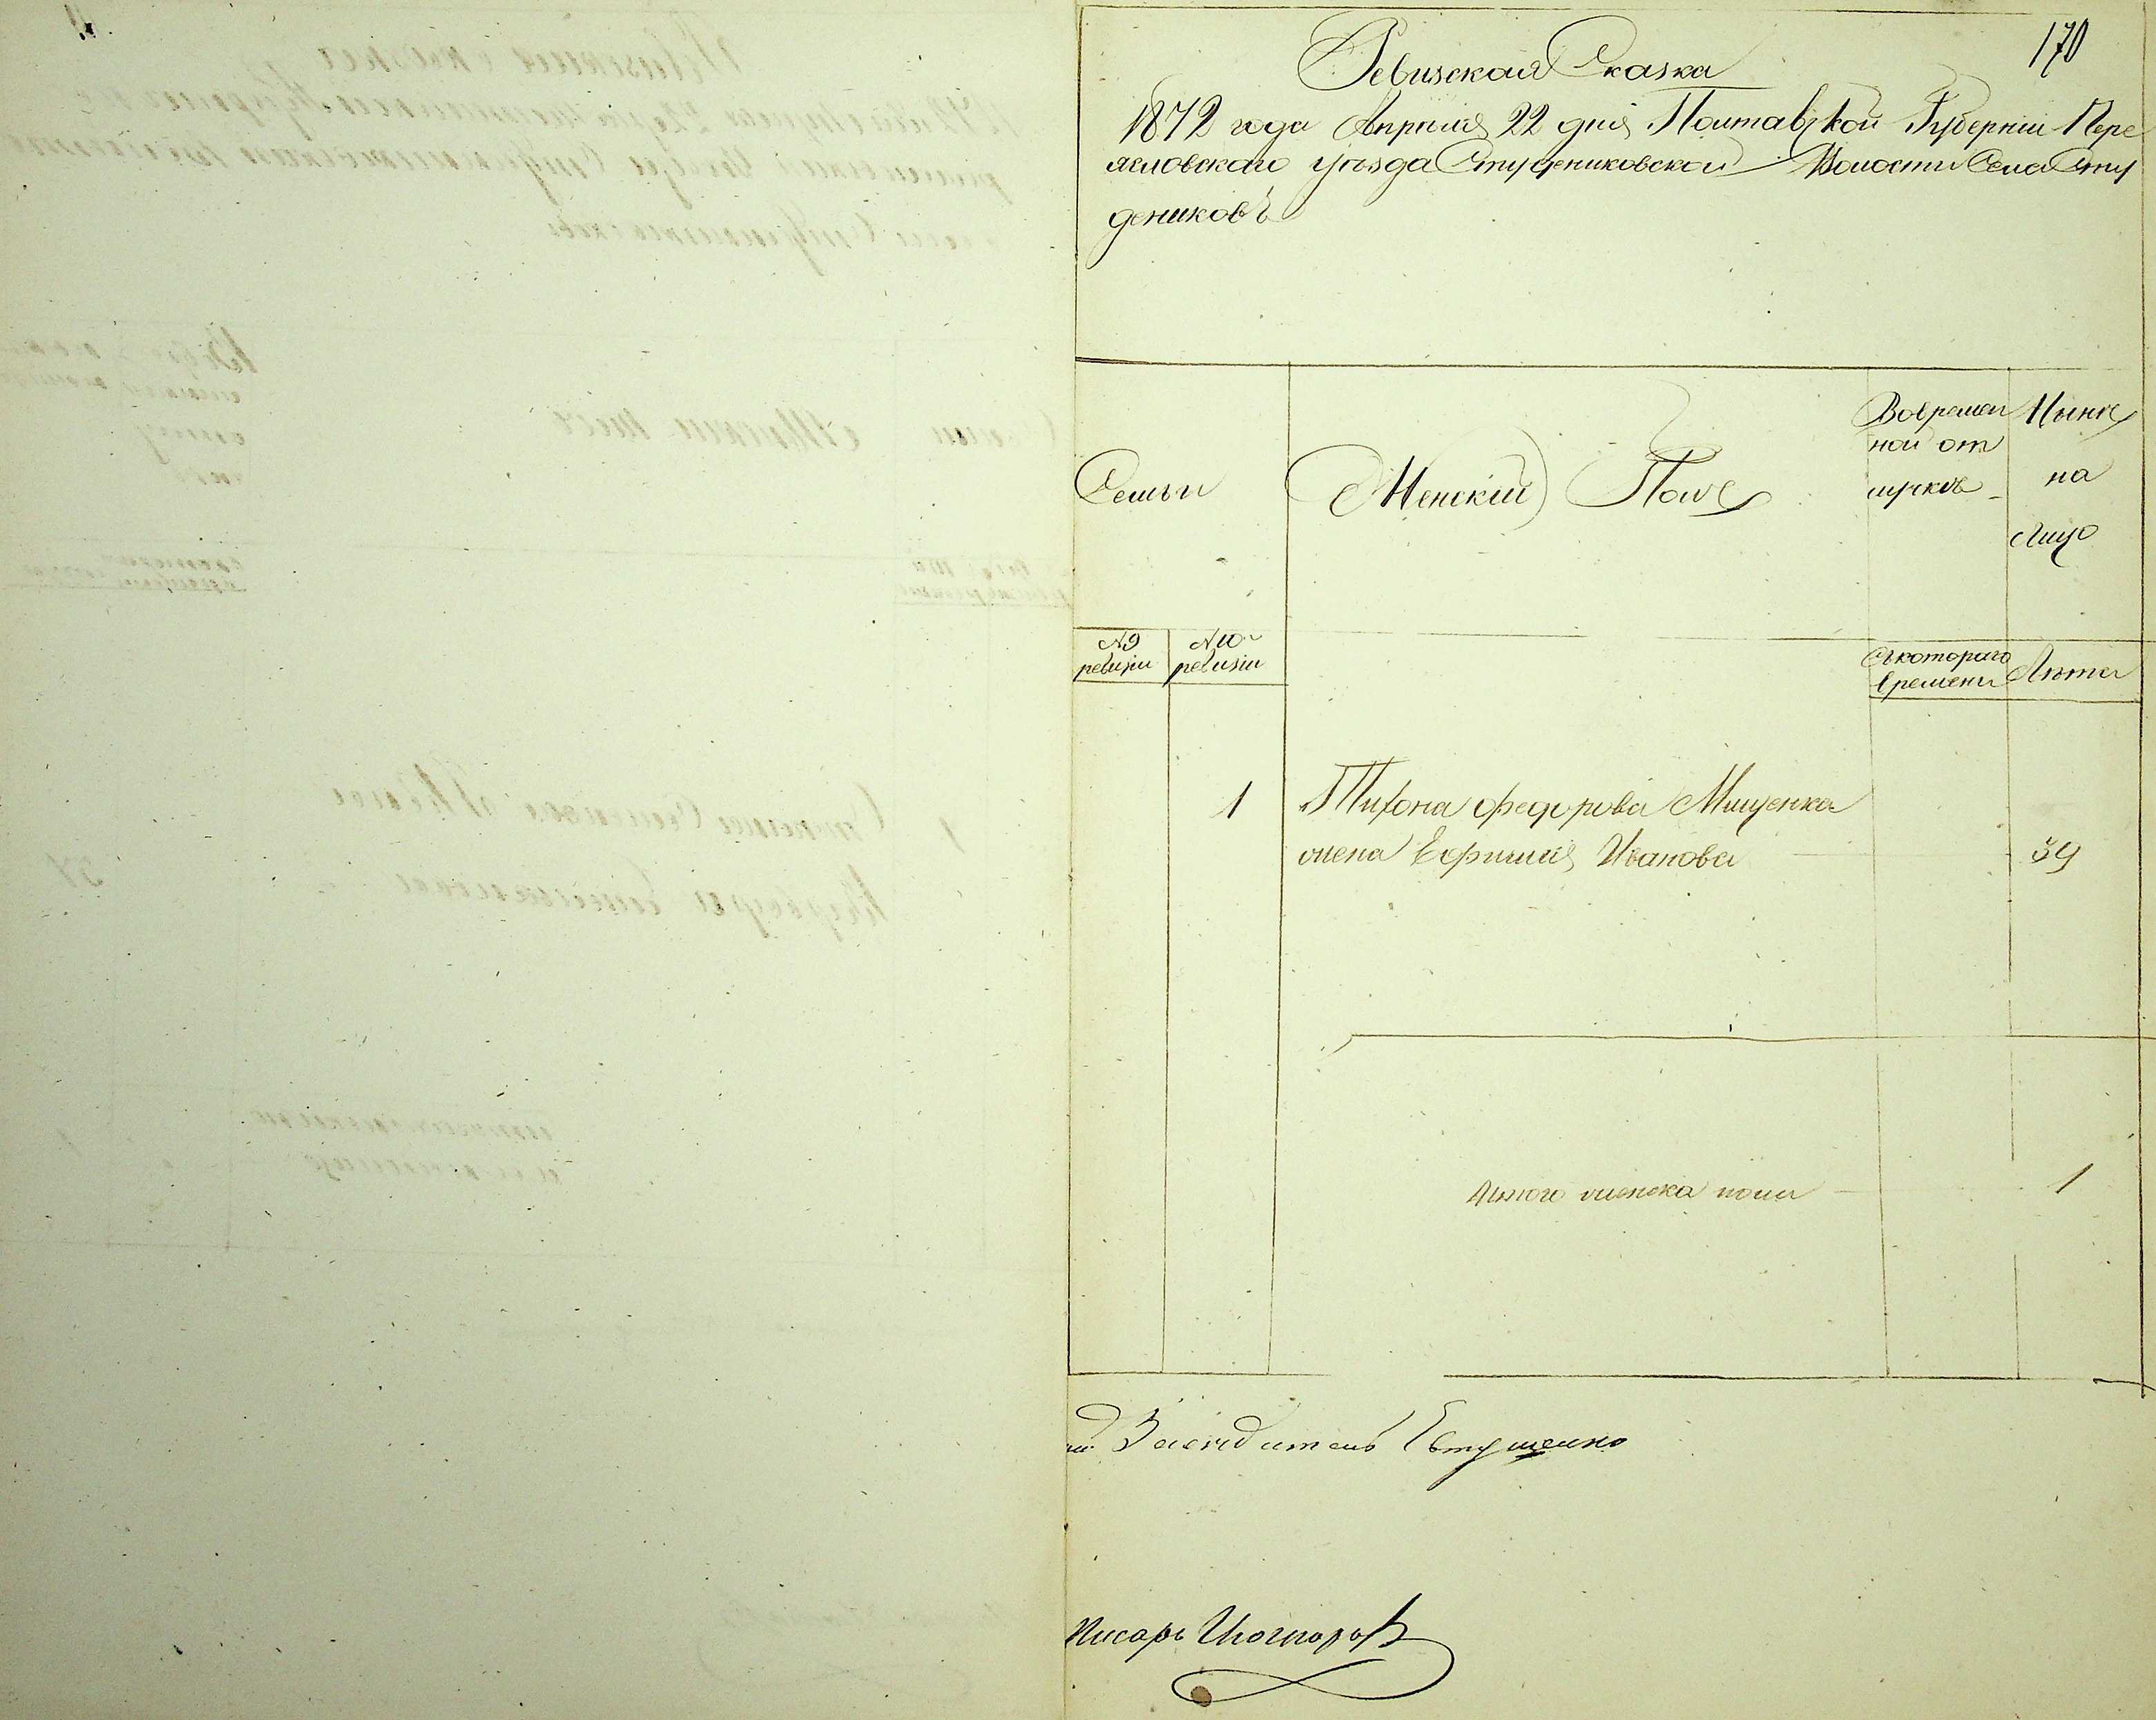 170
Ревизская Сказка
1872 года Апреля 22 дня Полтавской Губернии Пере
яславскаго уезда Студениковской Волости Села Сту
дениковъ
Семьи
Женский Полъ
Вовремен
ной от
лучкѣ
Нынѣ
на
Лицо
№ 9
ревизіи
№ 10
ревизіи
Съкотораго
времени
Лѣта
1
Тихона Федорова Мищенка
жена Евфимия Иванова
39
Итого женска пола
1
Заседатель Евтушенко
Писарь